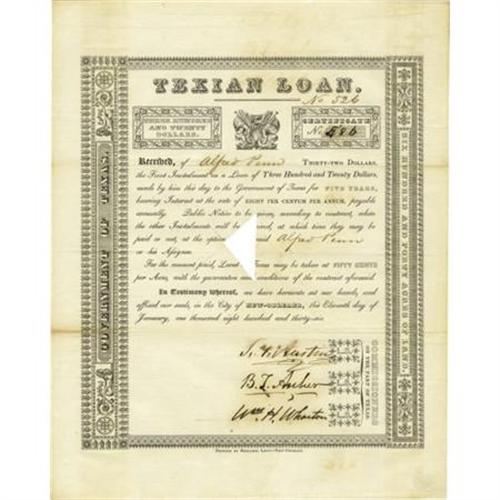 TEXIAN LOAN.
No 526
THREE HUNDRED
AND TWENTY
DOLLARS.
CERTIFICATE
No 526
Received, of Alfred Penn THIRTY-TWO DOLLARS,
the First Instalment on a Loan of Three Hundred and Twenty Dollars,
made by him this day to the Government of Texas for FIVE YEARS,
bearing Interest at the rate of EIGHT PER CENTUM PER ANNUM, payable
annually. Public Notice to be given, according to contract, when
the other Instalments will be required, at which time they may be
paid or not, at the option said Alfred Penn
or his Assigns.
For the amount paid, Land in Texas may be taken at FIFTY CENTS
per Acre, with the guarantees and conditions of the contract aforesaid.
In Testimony whereof, we have hereunto set our hands, and
affixed our seals, in the City of NEW-ORLEANS, this Eleventh day of
January, one thousand eight hundred and thirty-six.
S. F. Austin
B. T. Archer
Wm. H. Wharton
COMMISSIONERS
ON THE PART OF TEXAS.
GOVERNMENT OF TEXAS.
SIX HUNDRED AND FORTY ACRES OF LAND.